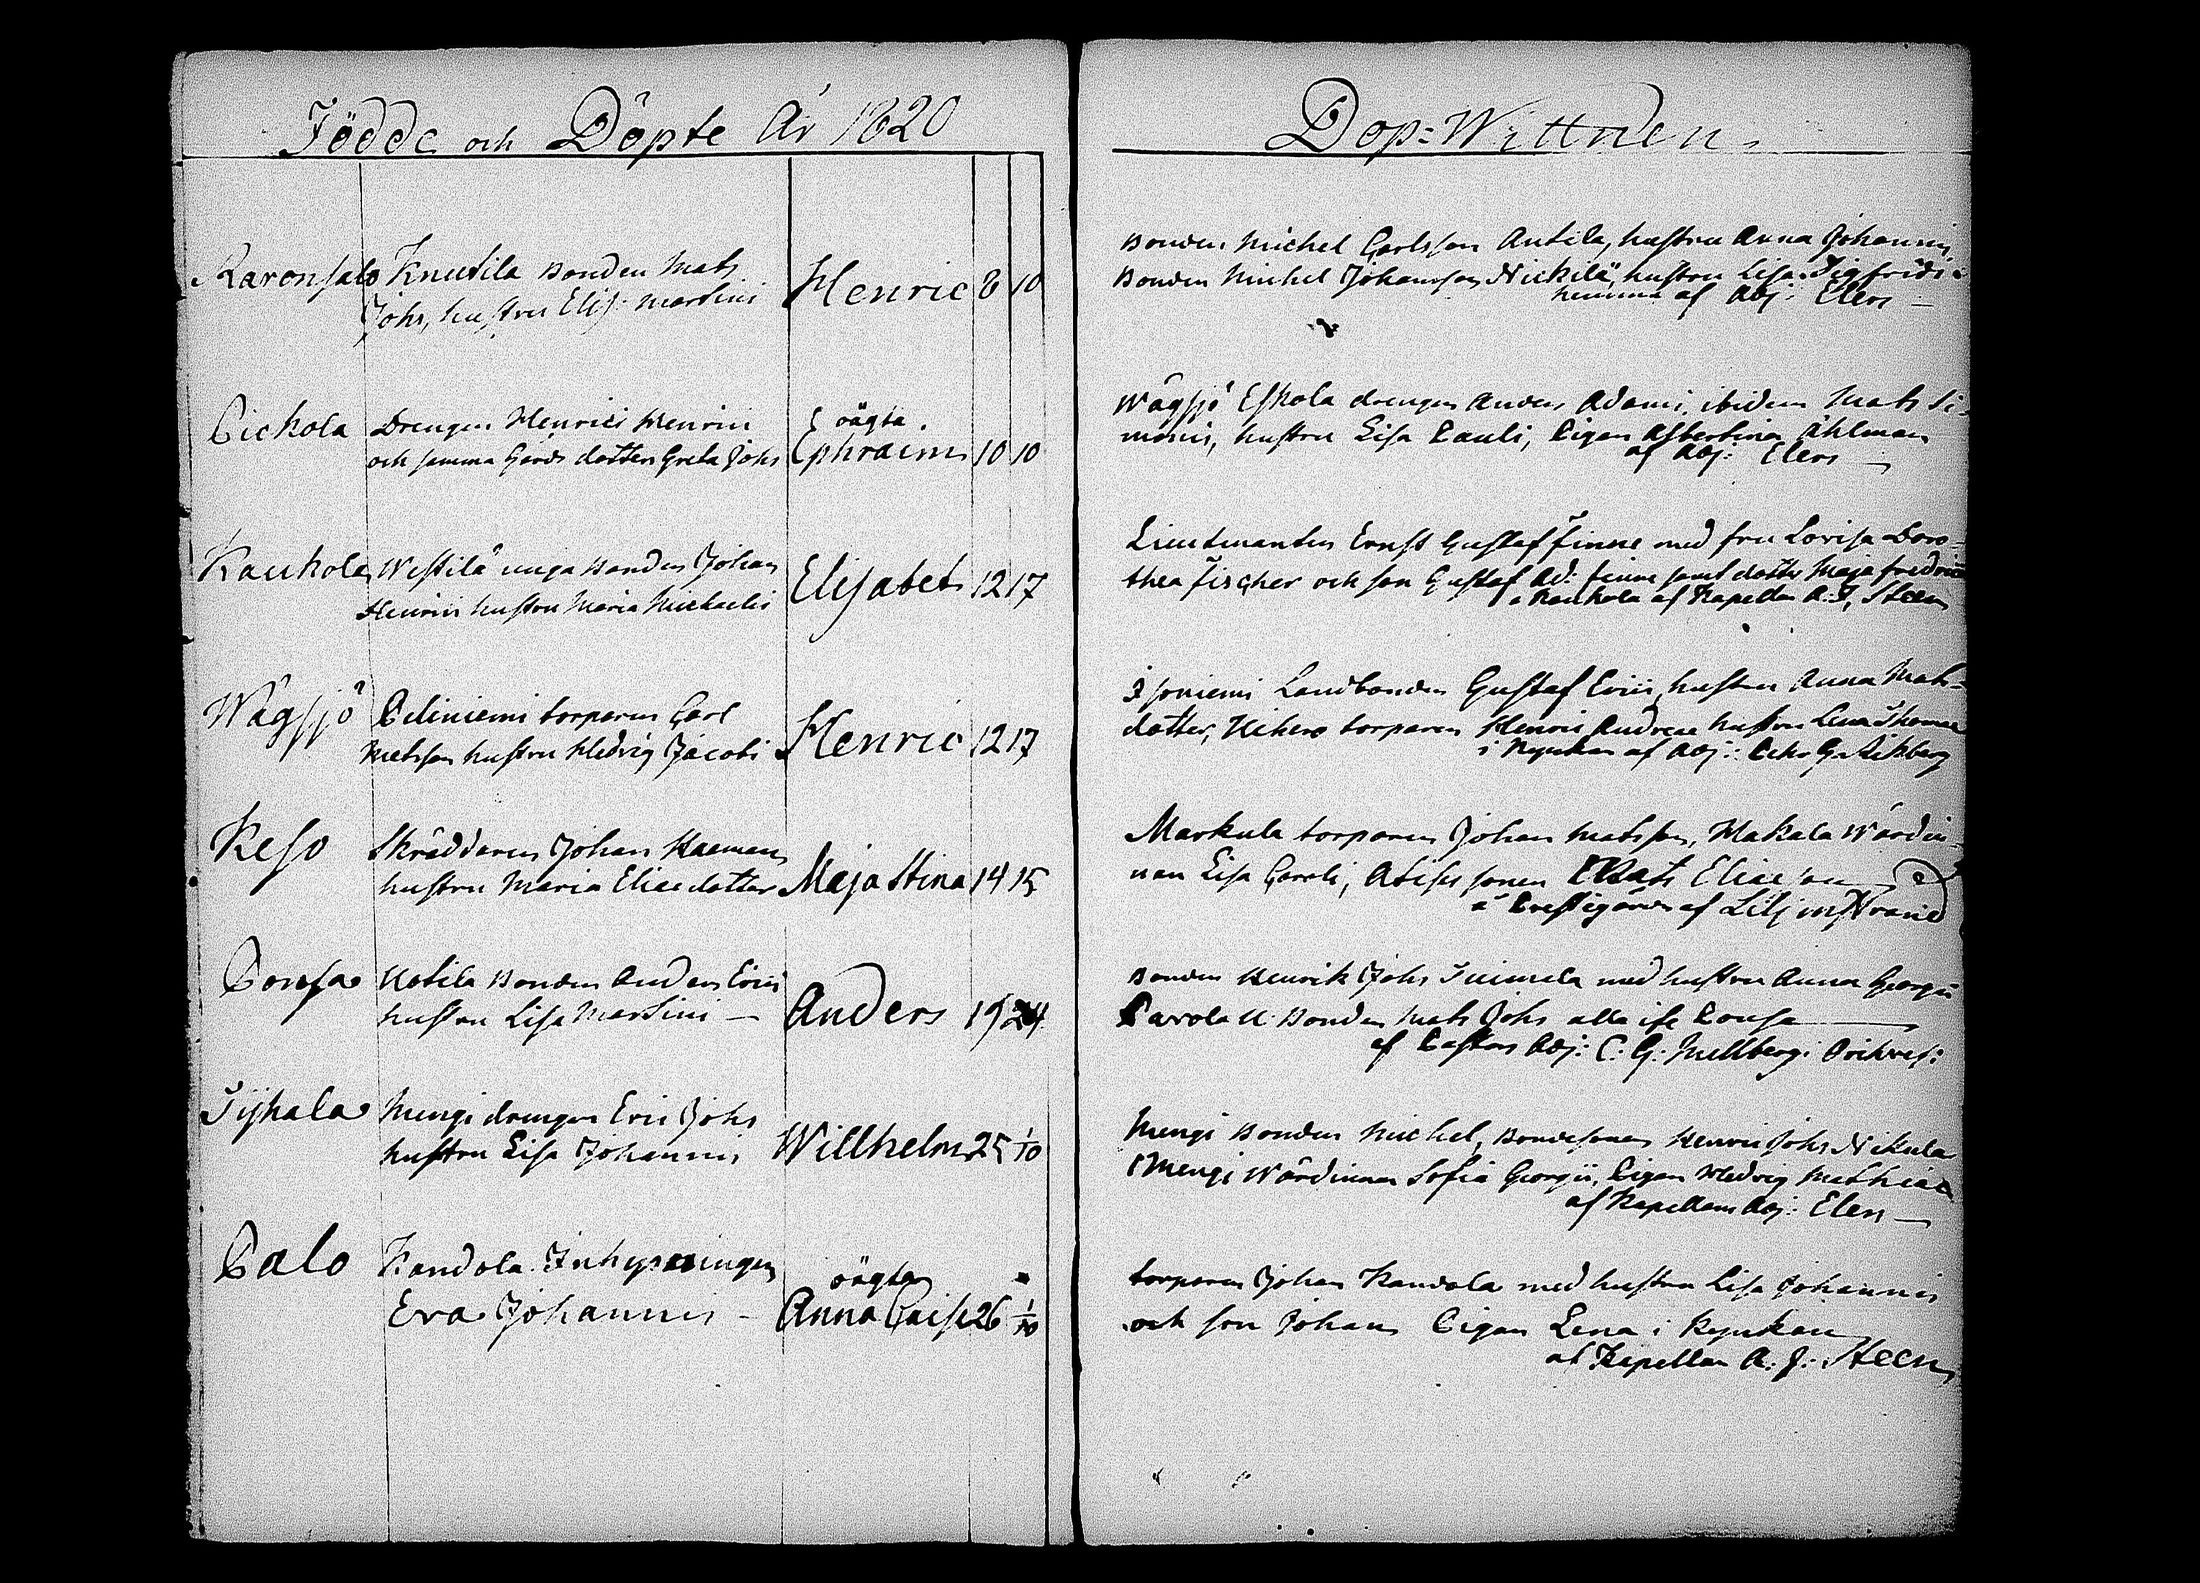 Födde och Döpte År 1820
Karonsalo Knutila Bonden Mats
Johs, hustru Elis: Martini Henric 8 10
Pickola Drengen Henrici Henrici oägta
och samma Gårds dotter Greta Johs Ephraim 10 10
Kaukola Westilä unga Bonden Johan
Henrici hustru Maria Michaelis Elisabet 12 17
Wågsjö Peliniemi torparen Carl
Matsson hustru Hedvig Jacobi Henric 12 17
Keso Skräddaren Johan
hustru Maria Eliaedotter Maja Stina 14 15
Pousa Uotila Bonden Anders Erici
hustru Lisa Martini — Anders 19 24
Mengi drengen Eric Johs
hustru Lisa Johannis Willhelm 25 1/10
Palo Kandola Inhysningen oägta
Eva Johannis - Anna Caisa 26 1/10
Dop-Wittnen
Bonden Michel Carlsson Antila, hustru Anna Johannis
Bonden Michel Johansson Nickilä, hustru Lisa Sigfridi
hemma af Adj: Elers —
Wågsjö Eskola drengen Anders Adami, ibidem Mats Si-
monis, hustru Lisa Pauli, Pigan Albertina Åhlman
af Adj: Elers —
Lieutenanten Ernst Gustaf Finne med fru Lovisa Doro-
thea Fischer och son Gustaf Ad: Finne samt dotter Maja Fredrica
i Kaukola af Kapellan A. J. Steen
Isoniemi Landbonden Gustaf Erici, hustru Anna Mats-
dotter, torparen Henric Andreae hustru Lena Thomae
i af Adj:
Markula torparen Johan Matsson, Hakala Wärdin-
nan Lisa Caroli, sonen Mats Eliae
å Prestgården af Liljenstrand
Bonden Henrik Johs med hustru Anna Georgii
Parola U Bonden Mats Johs alla ifr Pousa —
af Pastors Adj: C: G: Mellberg i
Mengi Bonden Michel, Bondesonen Henric Johs Nikula
Mengi Wärdinnan Sofia Georgii, Pigan Hedvig Mathiae
af Kapellans Adj: Elers —
torparen Johan Kandola med hustru Lisa Johannis
och son Johan Pigan Lena i
af Kapellan A. J. Steen